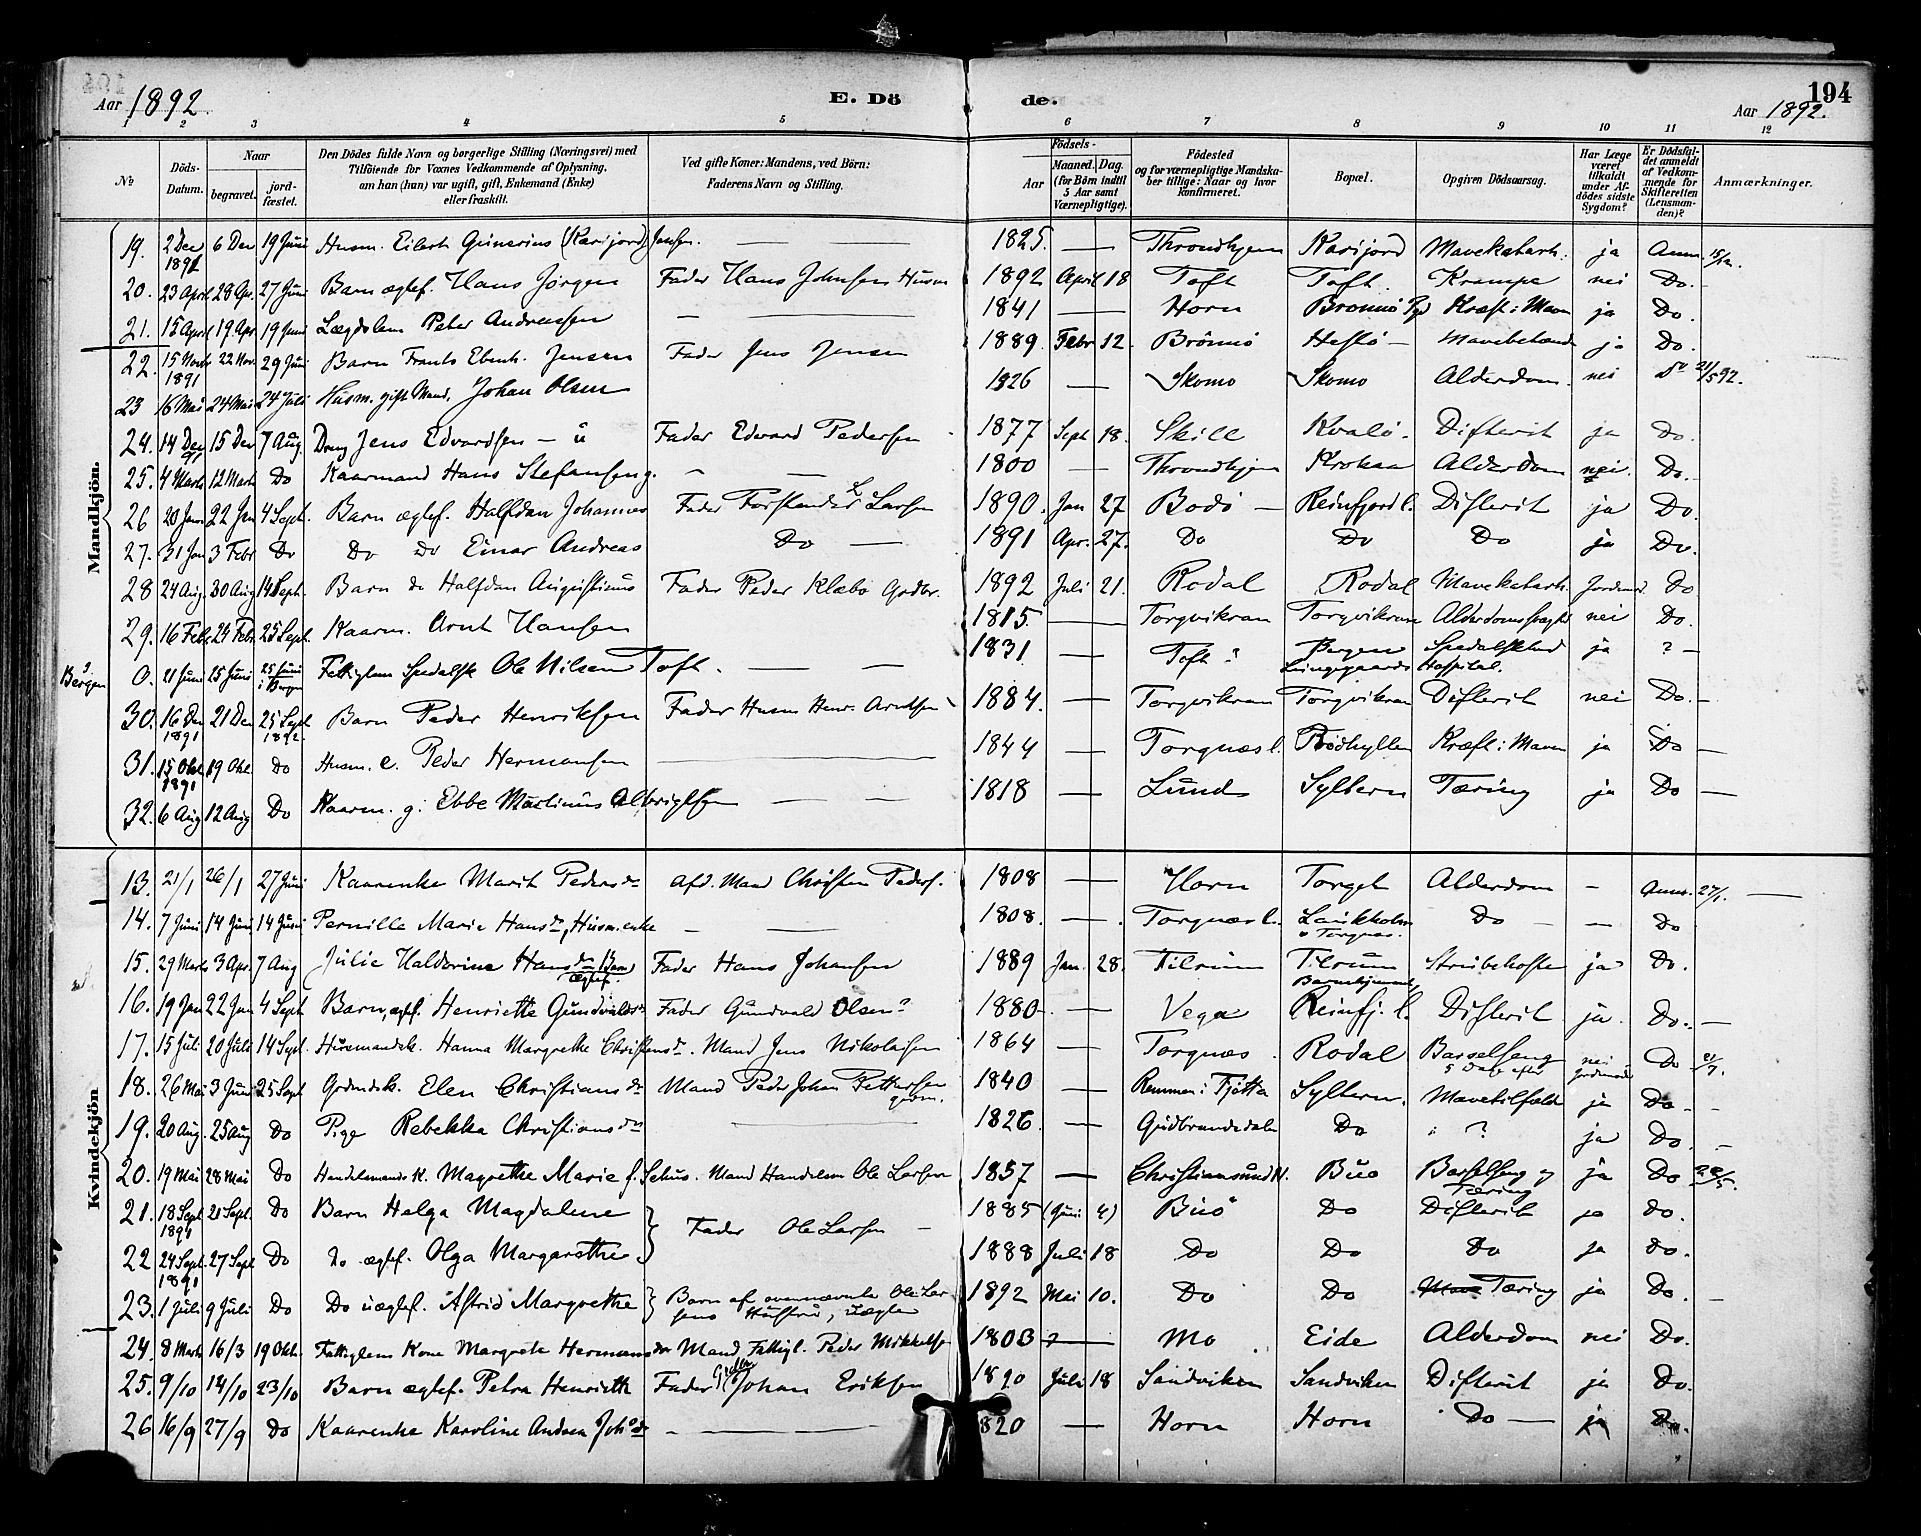 194
Aar 1892. E. Dö de. Aar 1892.
1 2 3 4 5 6 7 8 9 10 11 12
No Döds-Datum. Naar begravet. jord-fæstet. Den Dödes fulde Navn og borgerlige Stilling (Næringsvei) med Tilföiende for Voxnes Vedkommende af Oplysning, om han (hun) var ugift, gift, Enkemand (Enke) eller fraskilt. Ved gifte Koner: Mandens, ved Börn: Faderens Navn og Stilling. Födsels- Aar Maaned. Dag. (for Börn indtil 5 Aar samt Værnepligtige). Födested og for værnepligtige Mandskaber tillige: Naar og hvor konfirmeret. Bopæl. Opgiven Dödsaarsag. Har Læge været tilkaldt under Afdödes sidste Sygdom? Er Dödsfaldet anmeldt af Vedkommende for Skifteretten (Lensmanden)? Anmærkninger.
Mandkjön.
19. 2 Dec 1891 6 Dec 19 Juni Husm. Eilert Grinerius (Karijord) Jensen. — — 1825. — Throndhjem Karijord Mavekatarh. ja Anm. 15/12.
20. 23 April 28 Ap. 27 Juni Barn ægtef. Hans Jørgen Fader Hans Johnsen Husm 1892 April 18 Toft Toft. Krampe nei Do. —
21. 15 April 19 Apr 19 Juni Lægdslem Peter Andreassen — — 1841 — Horn Brønnø Pgd Kræft i Maven ja Do.
22. 15 Novbr 1891 22 Nov. 29 Juni Barn Frants Ebenh. Jensen Fader Jens Jensen 1889. Febr 12. Brönnö Hestö — ja Do.
23 16 Mai 24 Mai 24 Juli Husm. gift Mand, Johan Olsen 1826 — Skomo Skomo Alderdom. nei Do 21/5 92.
24. 14 Dec 91 15 Dec 7 Aug. Dreng Jens Edvardsen — u Fader Edvard Pedersen 1877 Sept 18. Skille Kvalö. Difterit ja Do.
25. 4 Marts 12 Marts Do Kaarmand Hans Stefansen g. — — 1800 — Throndhjem Krokaa Alderdom nei. Do. —
26 20 Jan 22 Jan 4 Sept. Barn ægtef. Halfdan Johannes Fader Forstander L. Larsen 1890. Jan 27 Bodö — Reinfjord l. Difterit ja Do.
27. 31 Jan 3 Febr Do Do Do Einar Andreas Do — 1891 Apr. 27. Do Do Do ja Do.
28 24 Aug. 30 Aug 14 Sept. Barn do Halfdan Augustinus Fader Peder Klæbo Grdbr. 1892 Juli 21. Rodal Rodal Mavekatarh. Jordemod. Do
29. 16 Feb. 24 Febr. 25 Sept. Kaarm. Arnt Hansen 1815. — Torgvikran Torgvikran Alderdomssvaghed nei Do.
Bergen 0. 21 Juni 25 Juni 25 Juni i Bergen Fattiglem Spedalsk Ole Nilsen Toft. — — 1831 — Toft? Bergen Lungegaards Hospital. Spedalskhed ja ? —
30. 16 Dec 1891 21 Dec 25 Sept 1892. Barn Peder Henriksen Fader Husm Henr. Arntsen 1884. — Torgvikran Torgvikran Difterit nei Do. —
31. 15 Okt 1891 19 Okt. Do Husm. e. Peder Hermansen — 1844 — Torgnæs l. Rödhyllen Kræft i Maven ja Do —
32. 6 Aug 12 Aug Do Kaarm. g. Ebbe Martinus Albrigtsen — — 1818 — Lund Syltern Tæring ja Do —
Kvindekjön
13. 21/1 26/1 27 Juni Kaarenke Marit Pedersdr Afd. Mand Christen Peders. 1808 — Horn Torget Alderdom — Anm. 27/1. —
14. 7 Juni 14 Juni 14 Juni Pernille Marie Hansdr, Husm. enke — — 1808. — Torgnæs l. Laukholm v Torgnæs. Do — — Do
15. 29 Marts 3 Apr. 7 Aug Julie Halderine Hansdr (Barn) ægtef. Fader Hans Johansen 1889 Jan. 28. Tilrum Tilrum Strubehoste ja Do.
16. 19 Jan 22 Jan 4 Sept Barn, ægtf. Henriette Gundvaldsdr Fader Gundvald Olsen? 1880. — Vega Barnehjemmet, Reinfj. l. Difterit ja. Do. —
17. 15 Juli 20 Juli 14 Sept. Husmandsk. Hanna Margrethe Christensdr. Mand Jens Nikolaisen 1864 — Torgnæs. Rodal Barselseng 5 Dage efter nei Jordemoder Do 21/7.
18. 26 Mai 3 Juni 25 Sept Grdmdsk. Elen Christiansdr Mand Peder Johan Pettersen grdm. 1840 — Remmen i Tjøtta Syltern. Mavetilfælde ja Do —
19. 20 Aug. 25 Aug Do Pige Rebekka Christiansdr — 1826. — Gudbrandsdalen Do ? ja Do. —
20. 19 Mai 28 Mai Do Handelsmands K. Magrethe Marie f. Sehus. Mand Handelsm Ole Larsen 1857 — Christiansund N. Buö Barselseng og Tæring ja Do 22/5.
21. 18 Sept 1891 21 Sept. Do Barn Helga Magdalene } Fader Ole Larsen — 1885 (Juni 4) Buö Do Difterit ja Do.
22 24 Sept 1891 27 Sept Do Do ægtef. Olga Margarethe. } 1888 Juli 18 Do Do Do ja Do.
23. 1 Juli 9 Juli Do Do uægtef. Astrid Margrethe } Barn af ovennævnte Ole Larsens Hustru, uægte 1892 Mai 10. Do Do Tæring ja Do. —
24. 8 Marts 16/3 19 Okt. Fattiglem Kone Margrete Hermansdr Mand Fattigl. Peder Mikkelsen 1803 ? — Mo Eide Alderdom nei Do.
25. 9/10 14/10 23/10 Barn ægtef. Petra Henriette Fader Johan Eriksen 1890 Juli 18 Sandviken Sandviken Difterit ja Do.
26 16/9 27/9 Do Kaarenke Karoline Andrea Johsdr — — 1820 — Horn Horn Do — ja Do.